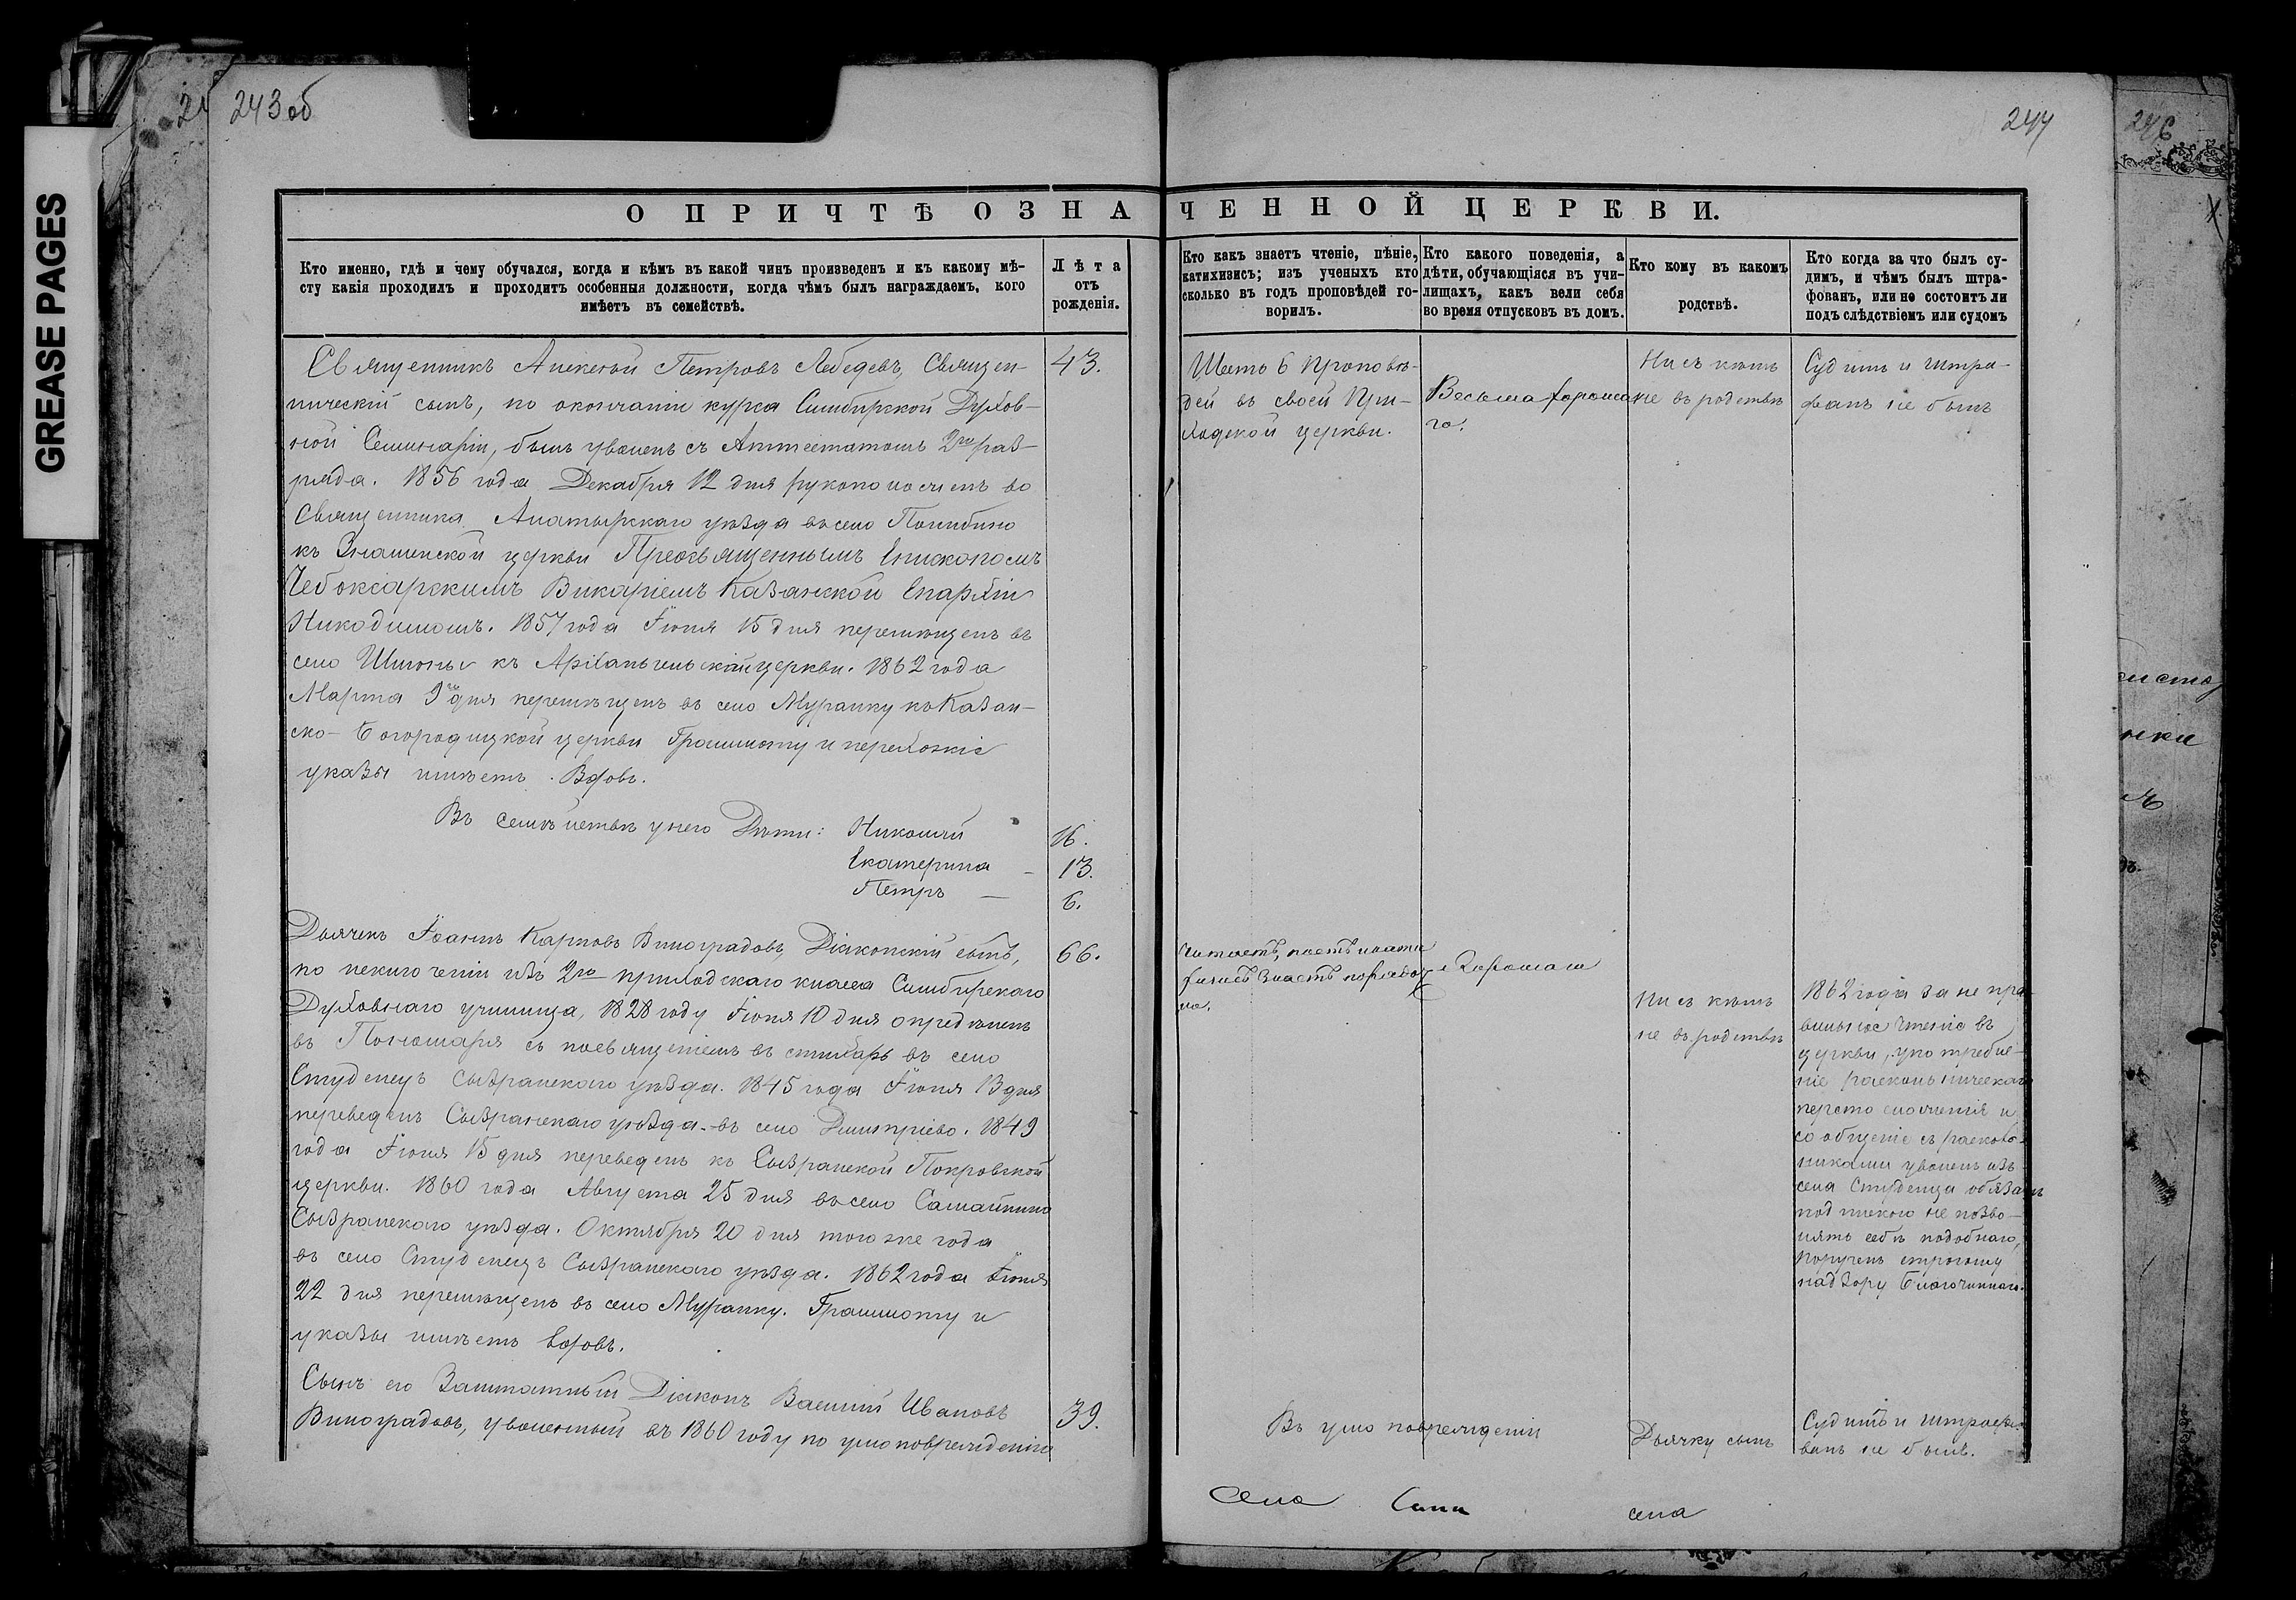 GREASE PAGES
243 об
244
246
О ПРИЧТѢ ОЗНАЧЕННОЙ ЦЕРКВИ.
Кто именно, гдѣ и чему обучался, когда и кѣмъ въ какой чинъ произведенъ и къ какому мѣ-
сту какія проходилъ и проходитъ особенныя должности, когда чѣмъ былъ награждаемъ, кого
имѣетъ въ семействѣ.
Лѣта
отъ
рожденія.
Кто какъ знаетъ чтеніе, пѣніе,
катихизисъ; изъ ученыхъ кто
сколько въ годъ проповѣдей го-
ворилъ.
Кто какого поведенія, а
дѣти, обучающіяся въ учи-
лищахъ, какъ вели себя
во время отпусковъ въ домъ.
Кто кому въ какомъ
родствѣ.
Кто когда за что былъ су-
димъ, и чѣмъ былъ штра-
фованъ, или не состоитъ ли
подъ слѣдствіемъ или судомъ
Священникъ Алексѣй Петровъ Лебедевъ, Священ-
ническій сынъ, по окончаніи курса Симбирской Духов-
ной Семинаріи, былъ уволенъ съ Аттестатомъ 2го раз-
ряда. 1856 года Декабря 12 дня рукоположенъ во
Священника Алатырскаго уѣзда въ село
къ церкви Преосвященнымъ Епископомъ
Чебоксарскимъ Викаріемъ Казанской Епархіи
Никодимомъ. 1857 года Іюня 15 дня перемѣщенъ въ
село къ Архангельской церкви. 1862 года
Марта 9го дня перемѣщенъ въ село Муранку къ Казан-
ско-Богородицкой церкви Граммоту и перехожіе
указы имѣетъ. Вдовъ.
Въ семѣйствѣ у него Дѣти: Николай
Екатерина –
Петръ —
43.
16.
13.
6.
Шесть 6 проповѣ-
дей въ своей При-
ходской церкви.
Весьма хороша-
го.
Ни съ кѣмъ
не въ родствѣ
Судимъ и штра-
фванъ не былъ
Дьячекъ Іоаннъ Карповъ Виноградовъ, Діаконскій сынъ,
по исключеніи изъ 2го приходскаго класса Симбирскаго
Духовнаго училища, 1828 году Іюня 10 дня опредѣленъ
въ Пономаря съ посвященіемъ въ стихарь въ село
Студенецъ Сызранскаго уѣзда. 1845 года Іюня 13 дня
переведенъ Сызранскаго уѣзда въ село Димитріево. 1849
года Іюня 15 дня переведенъ къ Сызранской Покровской
церкви. 1860 года Августа 25 дня въ село Самайкино
Сызранскаго уѣзда. Октября 20 дня того же года
въ село Студенецъ Сызранскаго уѣзда. 1862 года Іюня
22 дня перемѣщенъ въ село Муранку. Граммоту и
указы имѣетъ вдовъ.
66.
Читаетъ, поетъ и кати-
хизисъ знаетъ
но.
Хорошаго
Ни съ кѣмъ
не въ родствѣ
1862 года за не пра-
вильное чтеніе въ
церкви, употребле-
ніе раскольническаго
перстосложенія и
сообщеніе съ расколь-
никами уволенъ изъ
села Студенца обязанъ
подпискою не позво-
лять себѣ подобнаго,
Порученъ строгому
надзору Благочиннаго.
Сынъ его Заштатный Діаконъ Василій Ивановъ
Виноградовъ, уволенный въ 1860 году по умоповрежденію
39.
Въ умоповрежденіи
Дьячку сынъ
Судимъ и штрафо-
ванъ не былъ.
Села
села